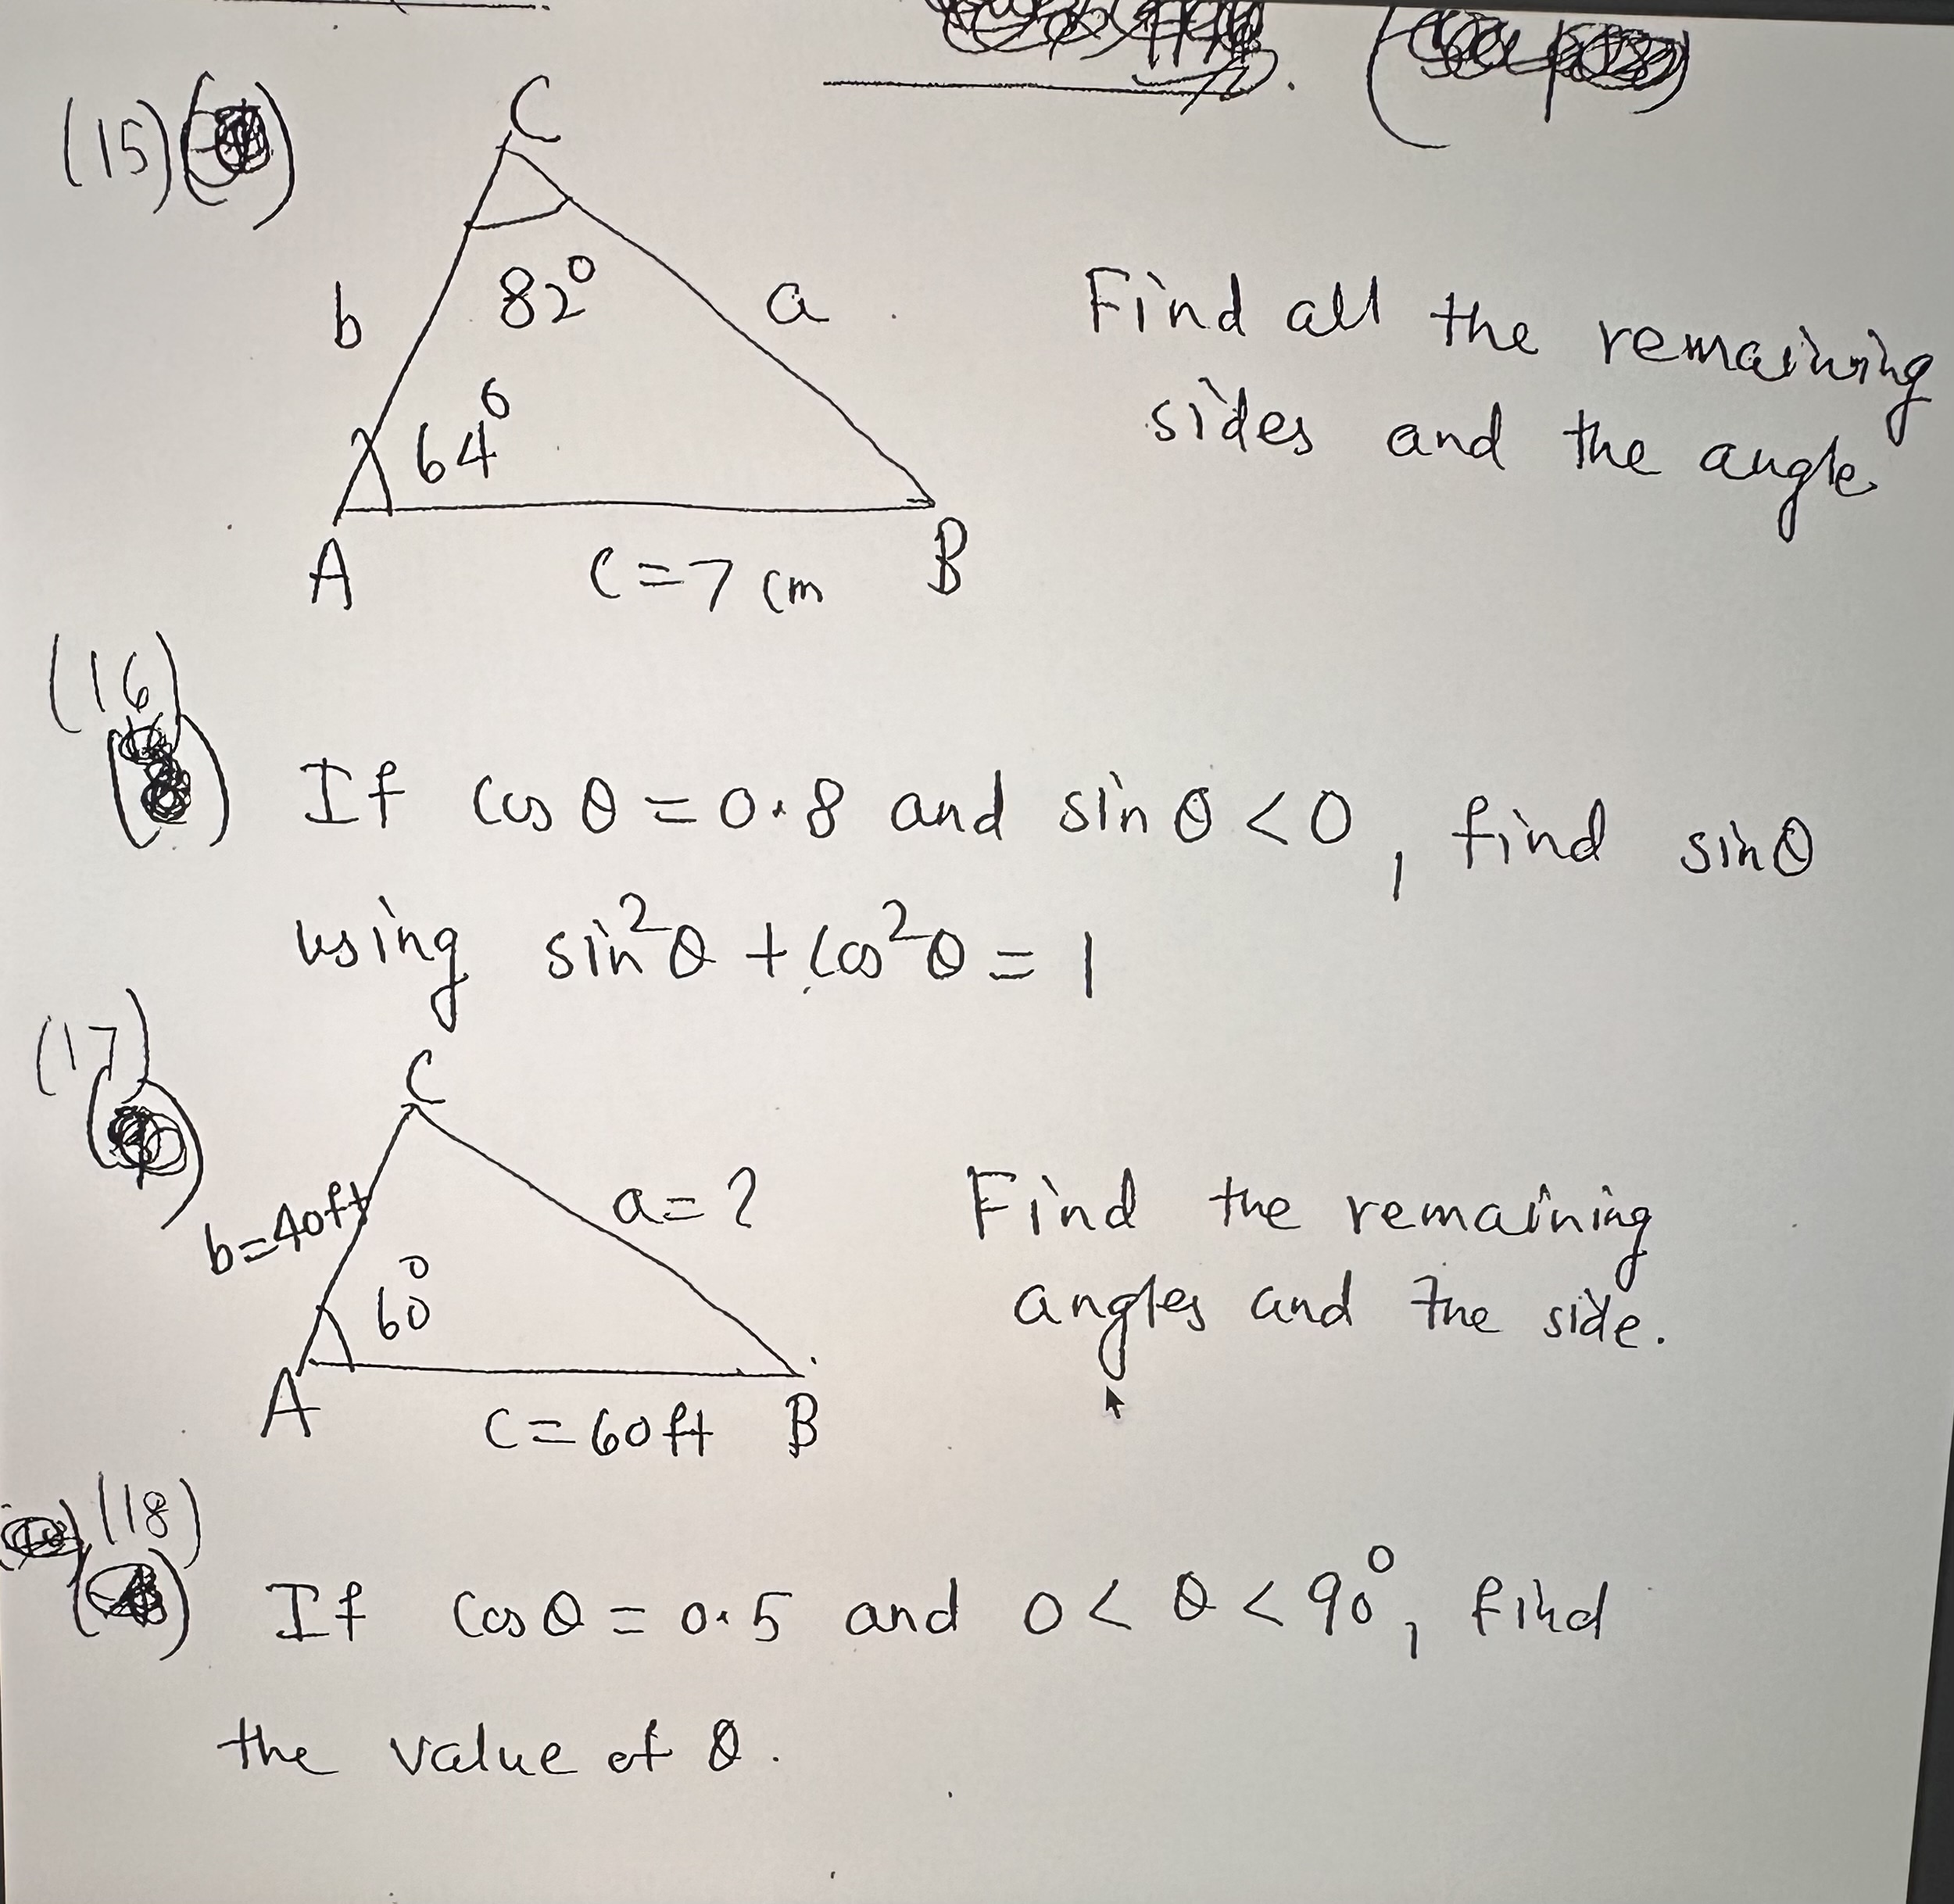 (15)
C
82°
b
a
Find all the remaining
sides and the angle
64°
A
B
C = 7 cm
(16)
If cos θ = 0.8 and sin θ < 0, find sin θ
using sin²θ + cos²θ = 1
(17)
C
b = 40ft
a = ?
60°
Find the remaining
angles and the side.
A
C = 60ft
B
(18)
If cos θ = 0.5 and 0 < θ < 90°, find
the value of θ.